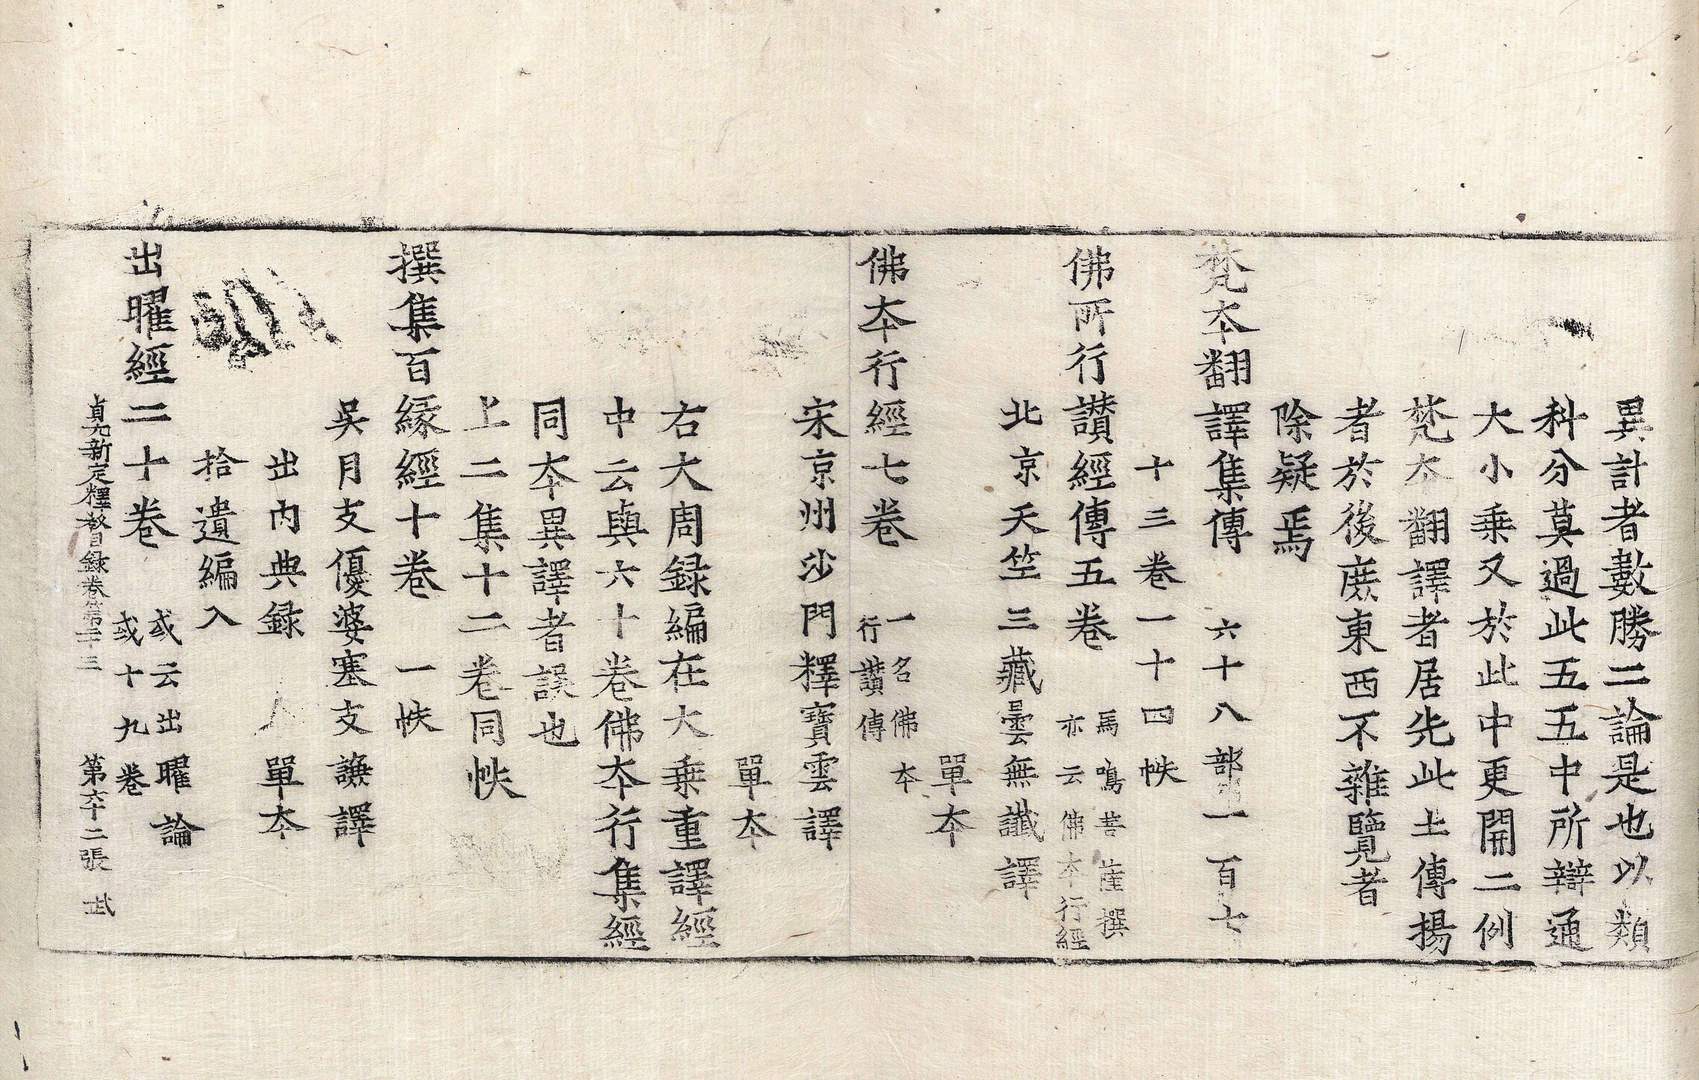 異計者數勝二論是也以類
科分莫過此五五中所辯通
大小乗又於此中更開二例
梵夲翻譯者居先此土傳揚
者於後庻東西不雜覽者
除疑焉
梵夲翻譯集傳 六十八部一百七
十三卷一十四帙
佛所行讃經傳五卷 馬鳴菩薩撰
亦云佛夲行經
北京天竺三藏曇無讖譯
單夲
佛夲行經七卷 一名佛夲
行讃傳
宋京州沙門釋寶雲譯
單夲
右大周録編在大乗重譯經
中云與六十卷佛夲行集經
同夲異譯者誤也
上二集十二卷同帙
撰集百緣經十卷 一帙
吳月支優婆塞支謙譯
出内典録 單夲
拾遺編入
出曜經二十卷 或云出曜論
或十九卷
貞元新定釋教目録卷第二十三 第六十二張 武